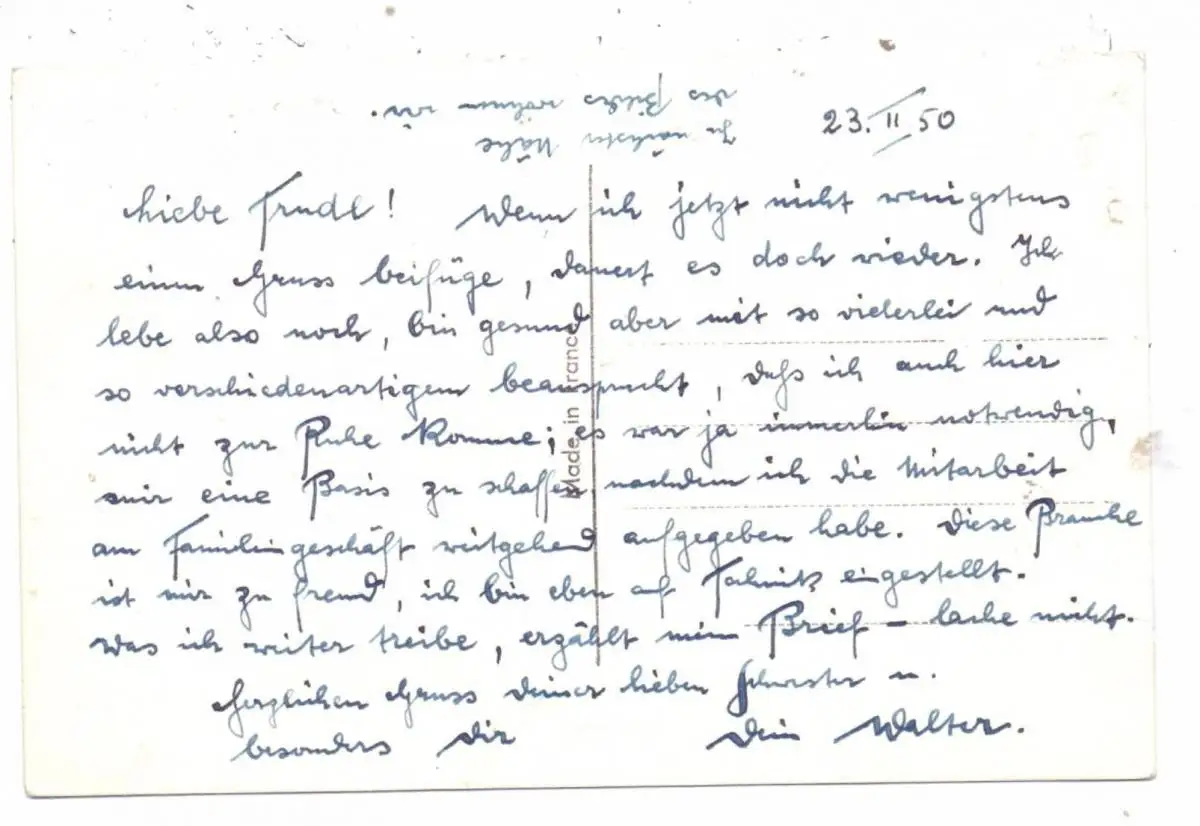 In nächster Nähe
des Bildes wohnen wir.
23. II 50
Liebe Trudl! Wenn ich jetzt nicht wenigstens
einen Gruss beifüge, dauert es doch wieder. Ich
lebe also noch, bin gesund aber mit so vielerlei und
so verschiedenartigem beansprucht, daß ich auch hier
nicht zur Ruhe komme; es war ja immerhin notwendig,
mir eine Basis zu schaffen nachdem ich die Mitarbeit
am Familiengeschäft weitgehend aufgegeben habe. Diese Branche
ist mir zu fremd, ich bin eben auf eingestellt.
Was ich weiter treibe, erzählt mein Brief – lache nicht.
Herzlichen Gruss Deiner lieben Schwester u.
besonders Dir Dein Walter.
Made in France